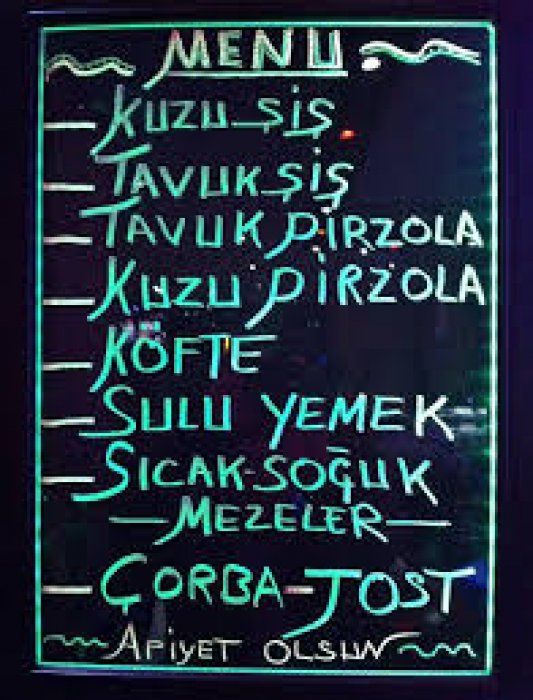 MENU
— KUZU ŞİŞ
— TAVUK ŞİŞ
— TAVUK PİRZOLA
— KUZU PİRZOLA
— KÖFTE
— SULU YEMEK
— SICAK-SOĞUK
— MEZELER —
— ÇORBA-TOST
AFİYET OLSUN